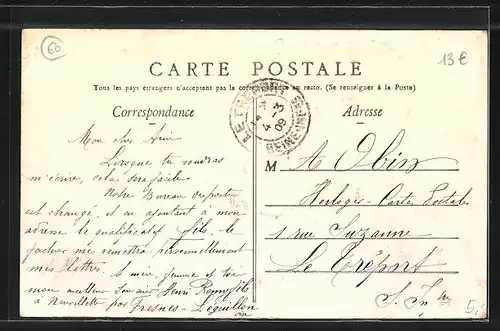 60
13 €
CARTE POSTALE
Tous les pays étrangers n'acceptent pas la correspondance au recto. (Se renseigner à la Poste)
Correspondance
Adresse
LE TRÉPORT
4 - 3
09
SEINE INFRE
Mon cher Ami
Lorsque tu voudras
m'écrire, cela sera facile
Notre Bureau de poste
est changé, et en ajoutant à mon
adresse le qualificatif fils, le
facteur me remettra personnellement
mes lettres.
A mère, femme et toi
mon meilleur Souvenir Henri Remy fils
à Neuvillette par Fresnes-Léguillon
Oise
M A Obin
Horloger - Cartes Postales
1 rue Suzanne
Le Tréport
S. Inre
5,-